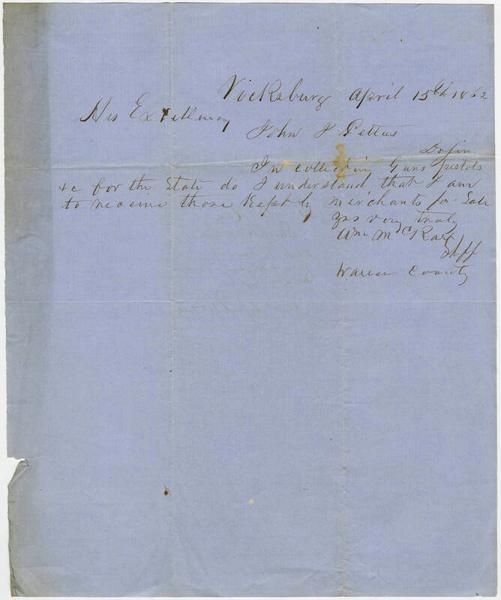 Vicksburg April 15th 1862
His Excellency
John J Pettus
Dr Sir
In collecting Guns pistols
&c for the State do I understand that I am
to receive those Kept by merchants for Sale
yrs very truly
Wm McRae
Shff
Warren County